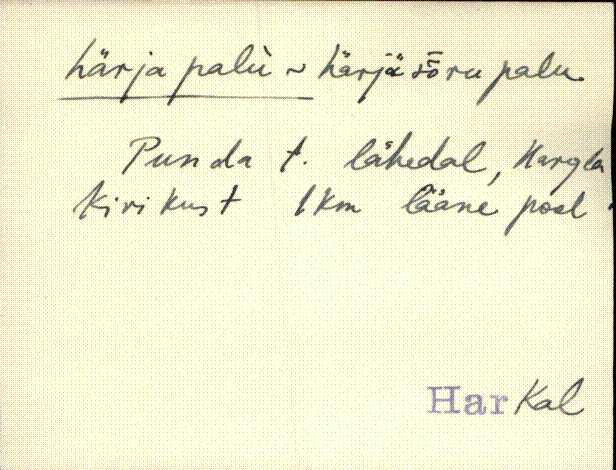 härja palù ~ härjä sȭru palu
Punda t. lähedal, Hargla
kirikust 1 km lääne pool.
Har Kal